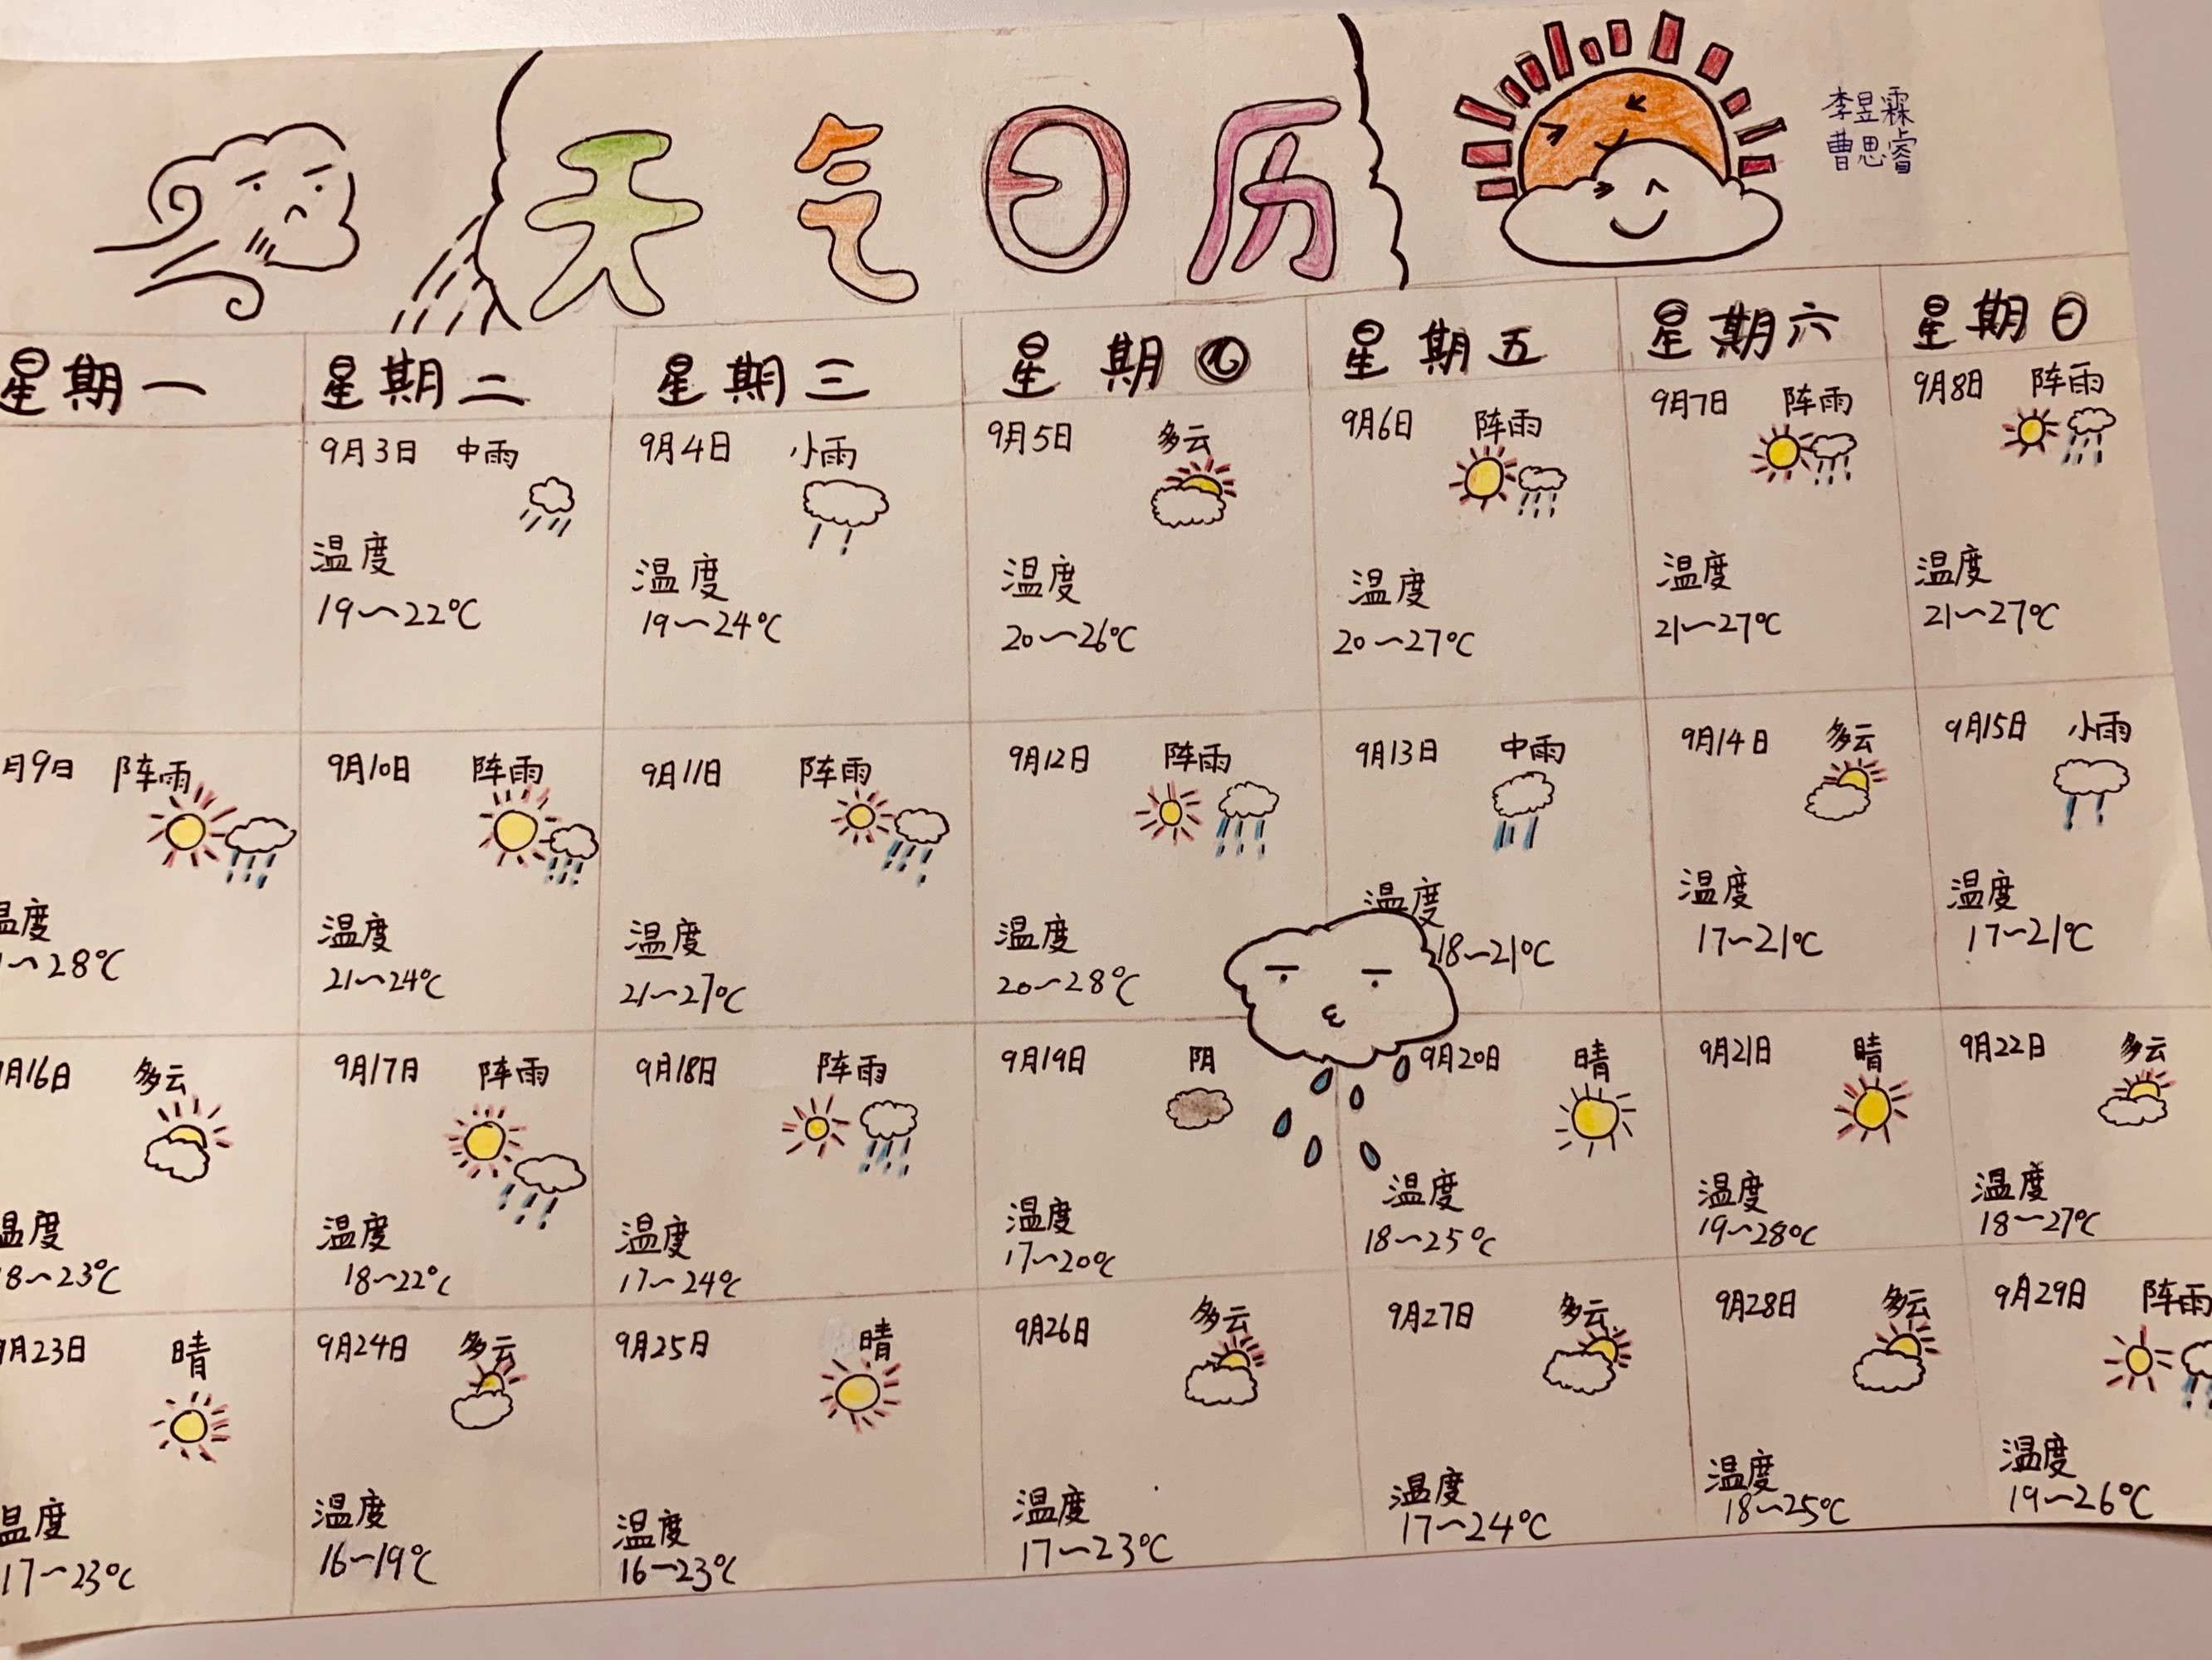 天气日历
李昱霖
曹思睿
星期一 星期二 星期三 星期四 星期五 星期六 星期日
9月3日 中雨
温度
19~22℃
9月4日 小雨
温度
19~24℃
9月5日 多云
温度
20~26℃
9月6日 阵雨
温度
20~27℃
9月7日 阵雨
温度
21~27℃
9月8日 阵雨
温度
21~27℃
月9日 阵雨
温度
~28℃
9月10日 阵雨
温度
21~24℃
9月11日 阵雨
温度
21~27℃
9月12日 阵雨
温度
20~28℃
9月13日 中雨
温度
18~21℃
9月14日 多云
温度
17~21℃
9月15日 小雨
温度
17~21℃
月16日 多云
温度
8~23℃
9月17日 阵雨
温度
18~22℃
9月18日 阵雨
温度
17~24℃
9月19日 阴
温度
17~20℃
9月20日 晴
温度
18~25℃
9月21日 晴
温度
19~28℃
9月22日 多云
温度
18~27℃
9月23日 晴
温度
17~23℃
9月24日 多云
温度
16~19℃
9月25日 晴
温度
16~23℃
9月26日 多云
温度
17~23℃
9月27日 多云
温度
17~24℃
9月28日 多云
温度
18~25℃
9月29日 阵雨
温度
19~26℃